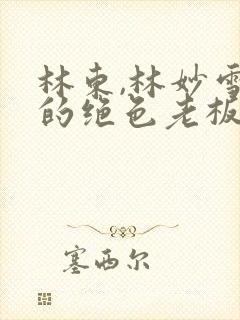 林东,林妙雪
的绝色老板
塞西尔